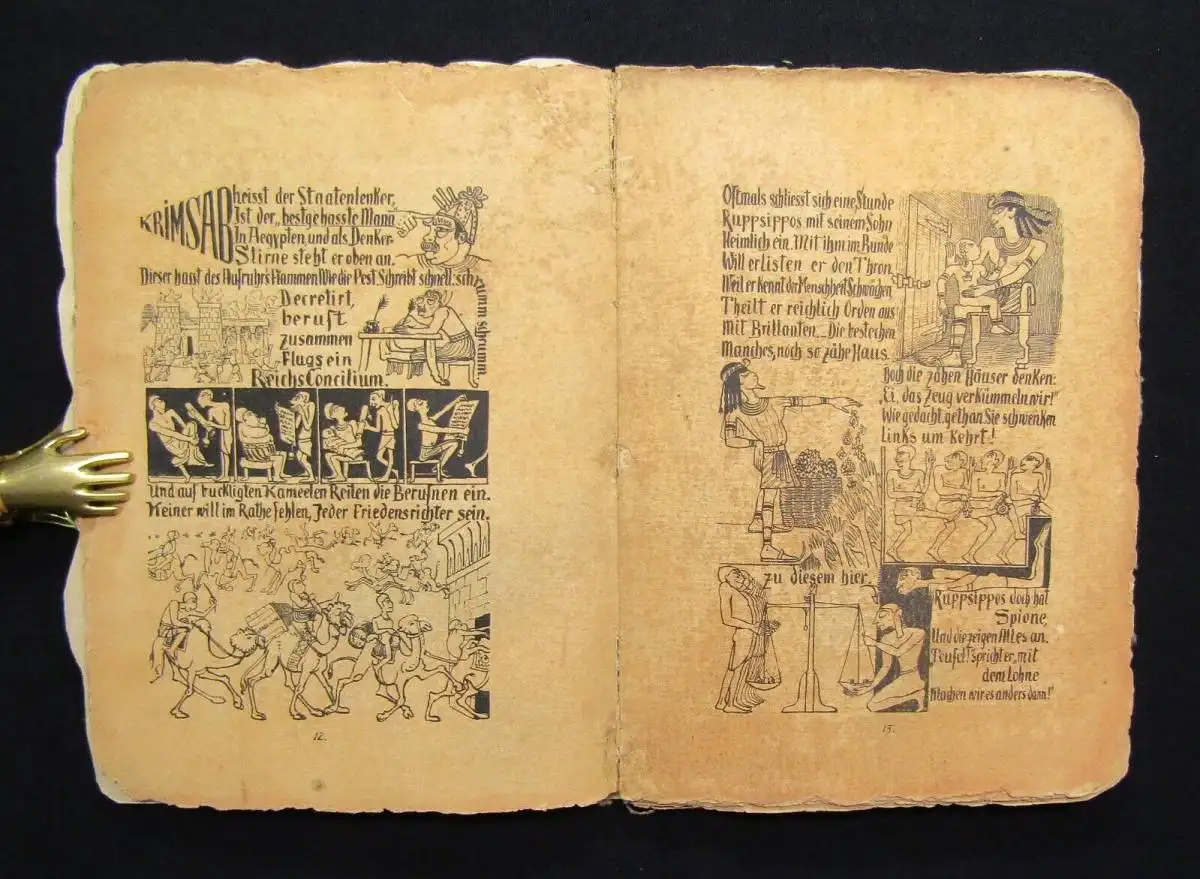 KRIMSAB heisst der Staatenlenker,
Ist der „bestgehasste Mann
In Aegypten, und als Denker-
Stirne steht er oben an.
Dieser hasst des Aufruhr's Flammen Wie die Pest. Schreibt schnell, sich krumm schrumm.
Decretirt,
beruft
zusammen
Flugs ein
ReichsConcilium.
Und auf buckligten Kameelen Reiten die Berufnen ein.
Keiner will im Rathe fehlen, Jeder Friedensrichter sein.
12.
Oftmals schliesst sich eine Stunde
Ruppsippos mit seinem Sohn
Heimlich ein. Mit ihm im Bunde
Will erlisten er den Thron.
Weil er kennt der Menschheit Schwächen
Theilt er reichlich Orden aus
Mit Brillanten. Die bestechen
Manches, noch so zähe Haus.
Doch die zähen Häuser denken:
„Ei, das Zeug verkümmeln wir!"
Wie gedacht, gethan. Sie schwenken
Links um Kehrt!
zu diesem hier,
Ruppsippos doch hat
Spione,
Und die zeigen Alles an.
Teufel! spricht er, mit
dem Lohne
Machen wir es anders dann!"
13.